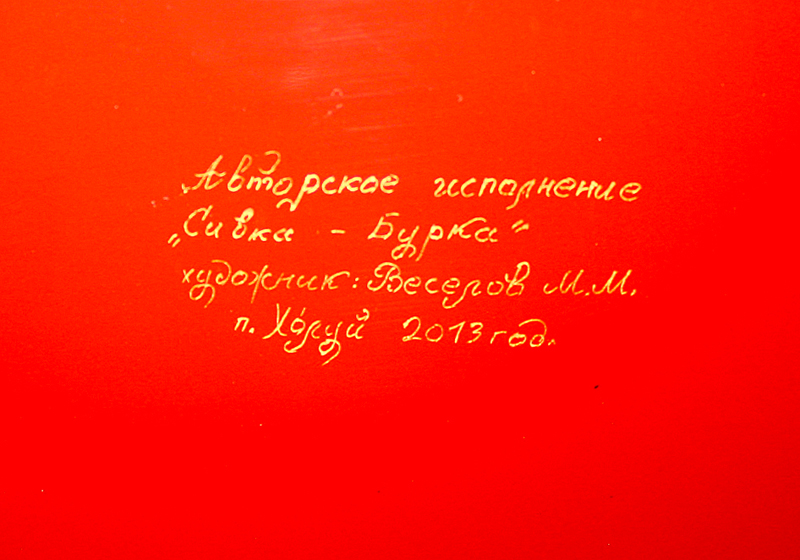 Авторское исполнение
„Сивка - Бурка“
художник: Веселов М.М.
п. Холуй 2013 год.